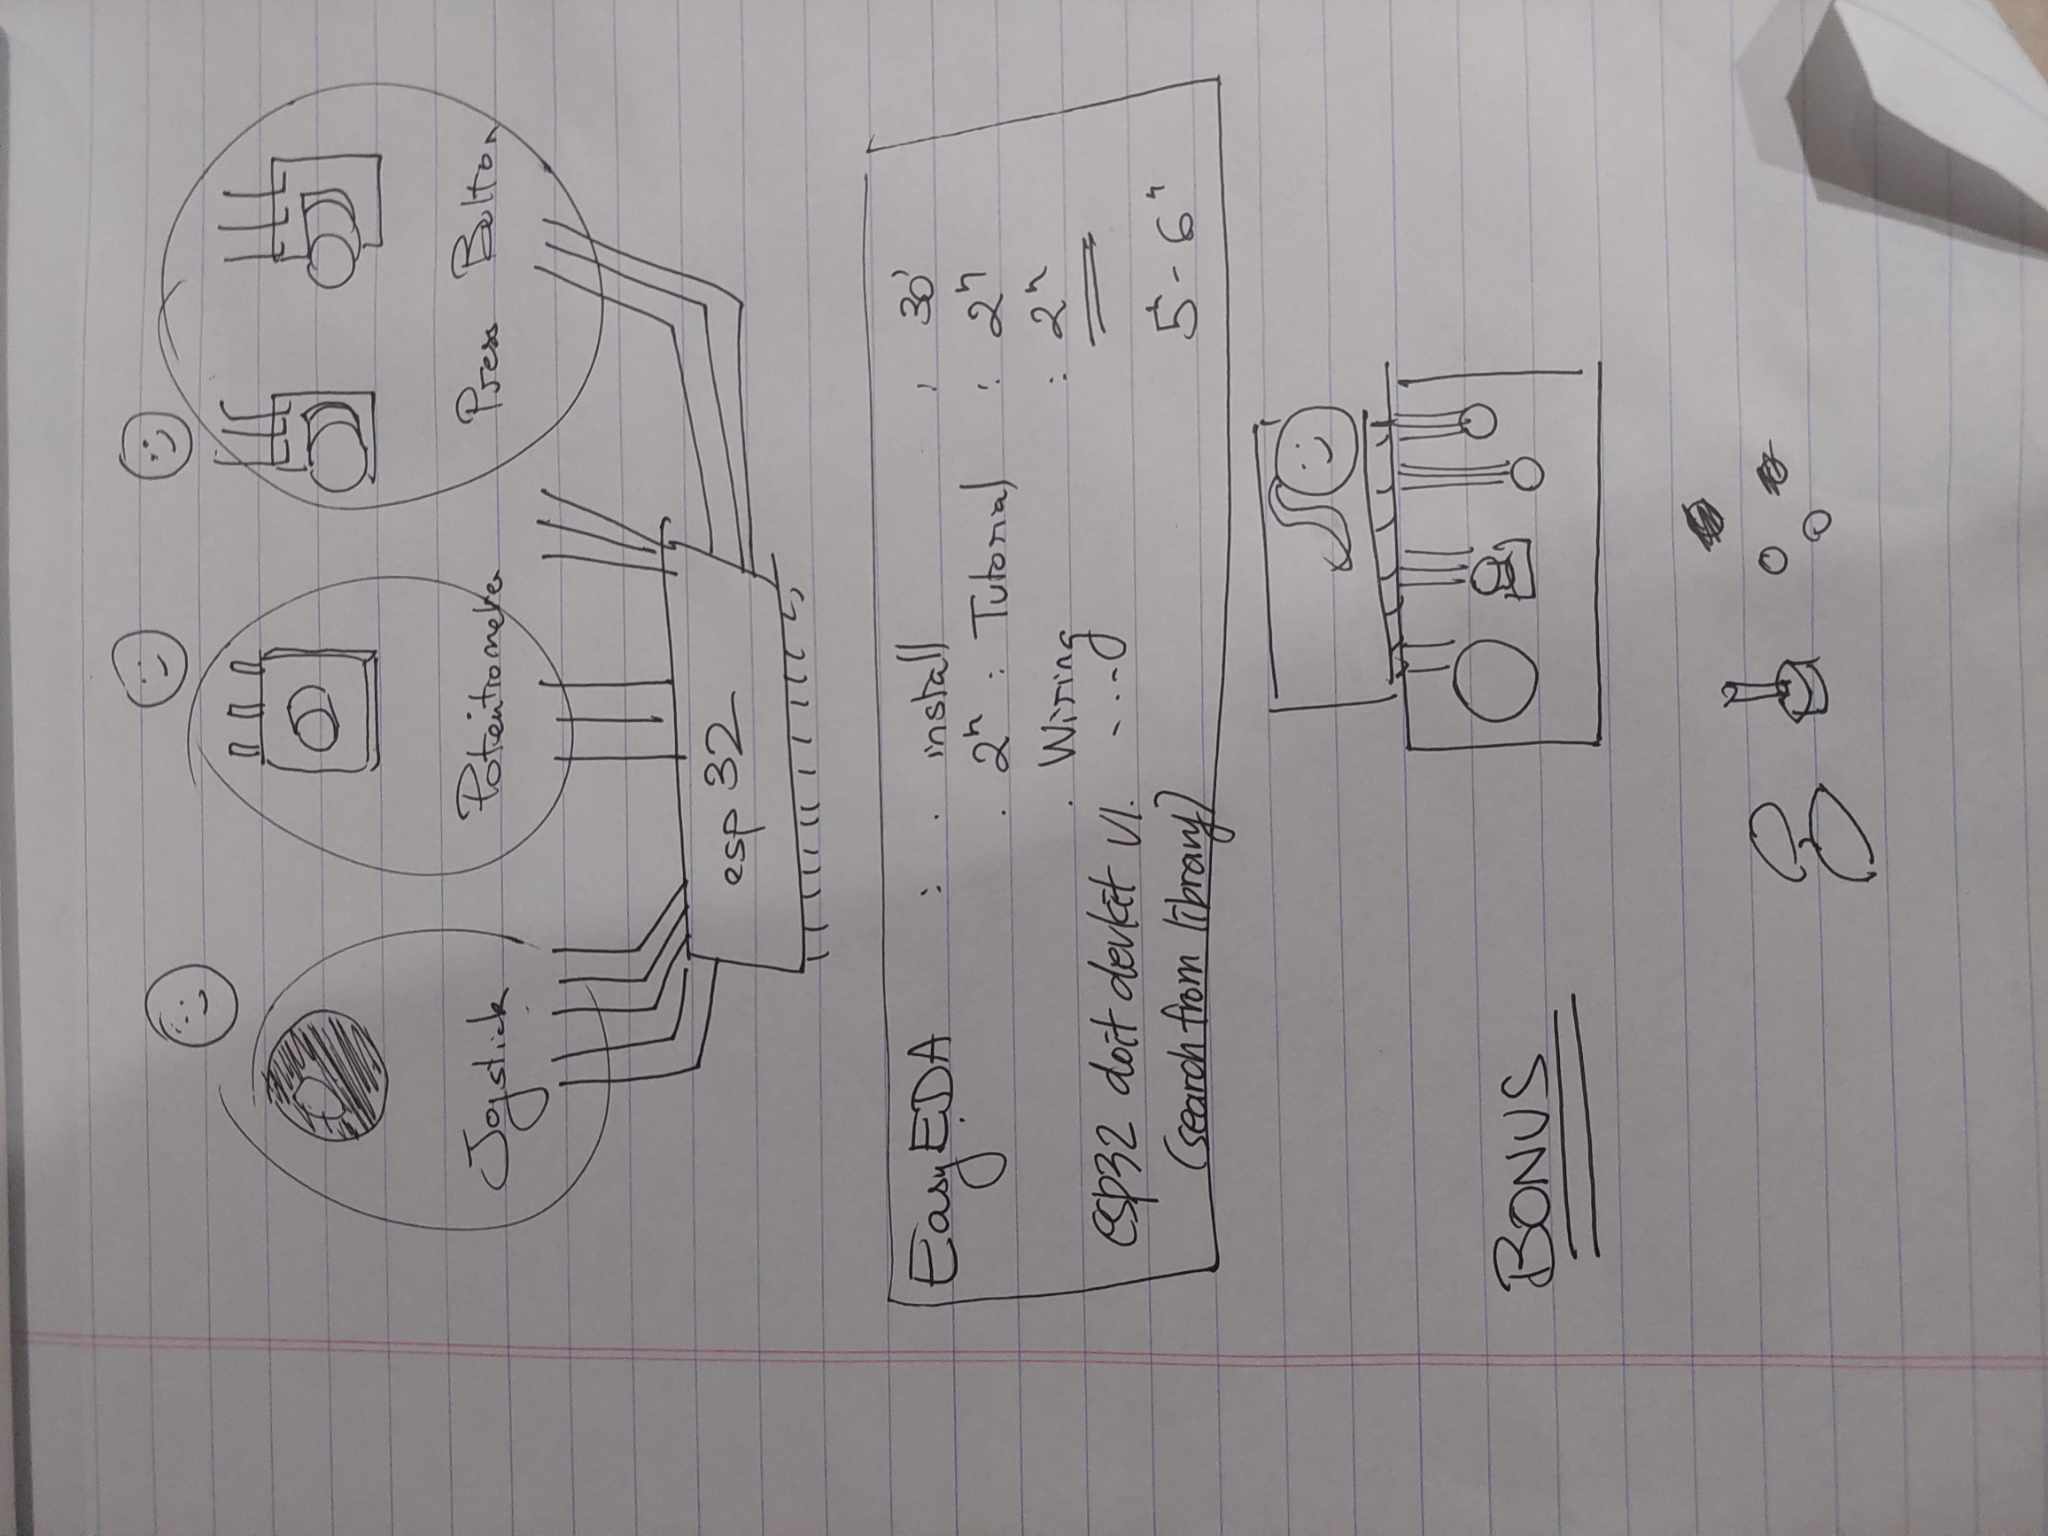 Joystick Potentiometer Press Button
esp 32
EasyEDA : . install : 30'
. 2h : Tutorial : 2h
. Wiring : 2h
esp32 doit devkit V1. ....
(search from library) 5h - 6h
BONUS